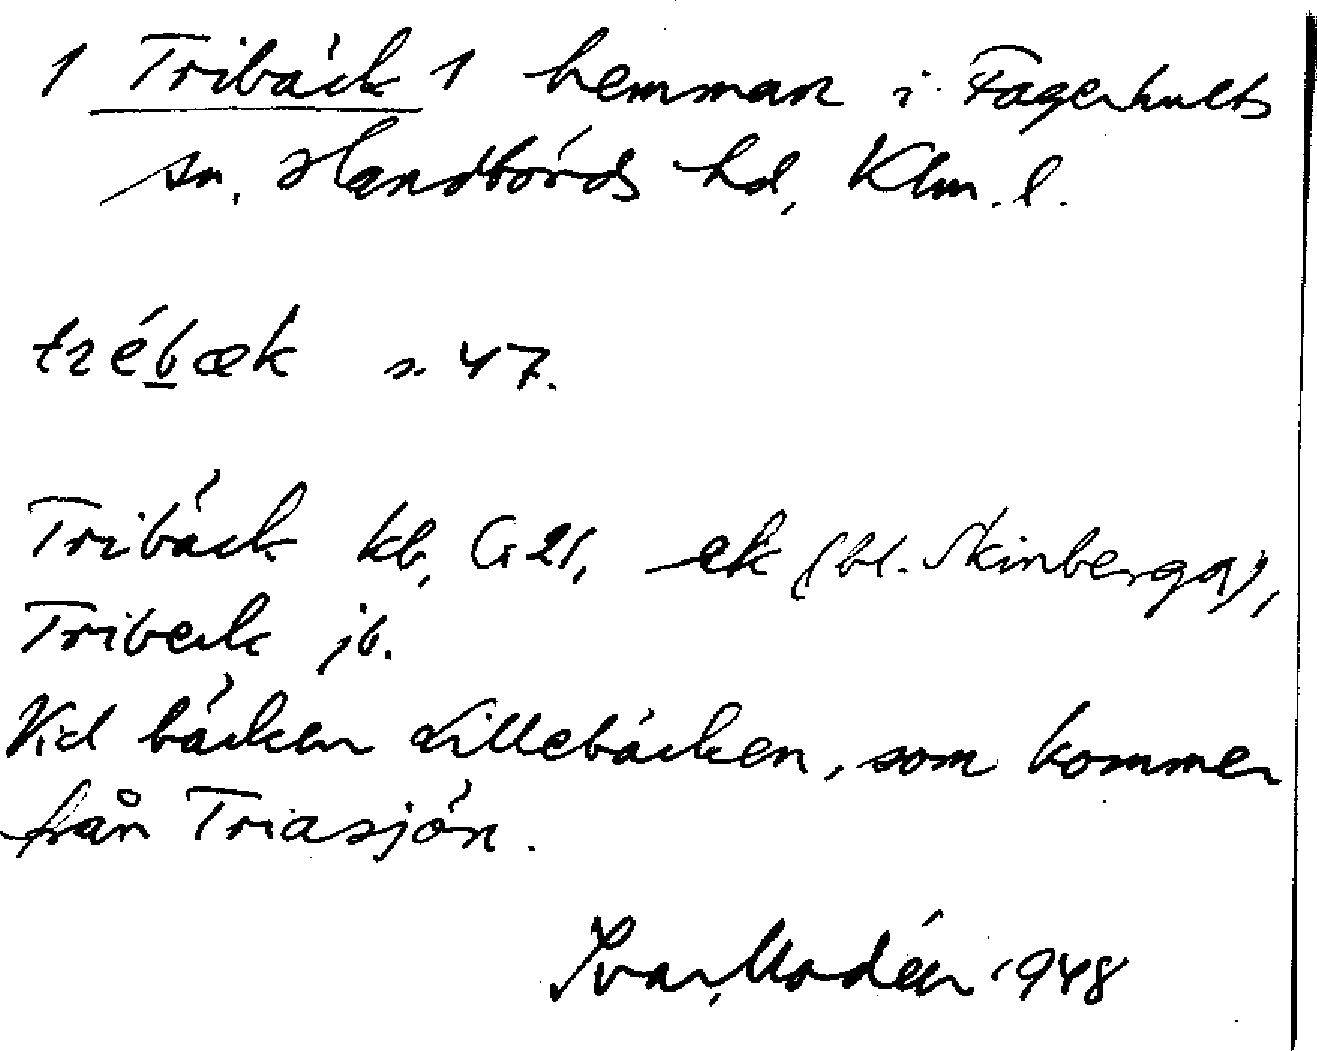 1 Tribäck 1 hemman i Fagerhults
sn, Handbörds hd, Klm. l.
trébæk s. 47.
Tribäck kb, G 21, ek (bl. Skinberga),
Tribeck jb.
Vid bäcken Lillebäcken, som kommer
från Triasjön.
Ivar Modéer 1948